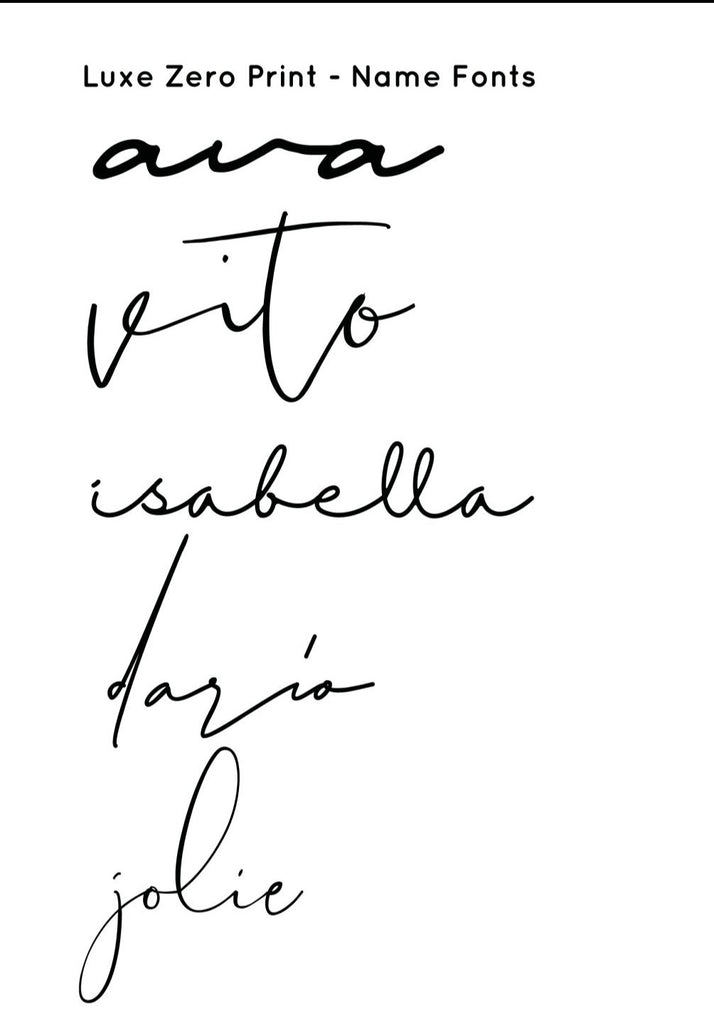 Luxe Zero Print - Name Fonts
ava
vito
isabella
dario
jolie